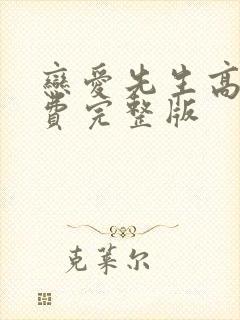 戀愛先生高
費完整版
克萊尔